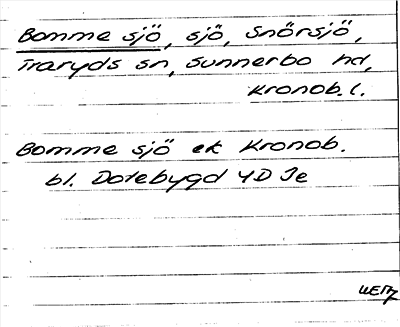 Bomme sjö, sjö, Snörsjö,
Traryds sn, Sunnerbo hd,
Kronob. l.
Bomme sjö ek Kronob.
bl. Dotebygd 4D Je